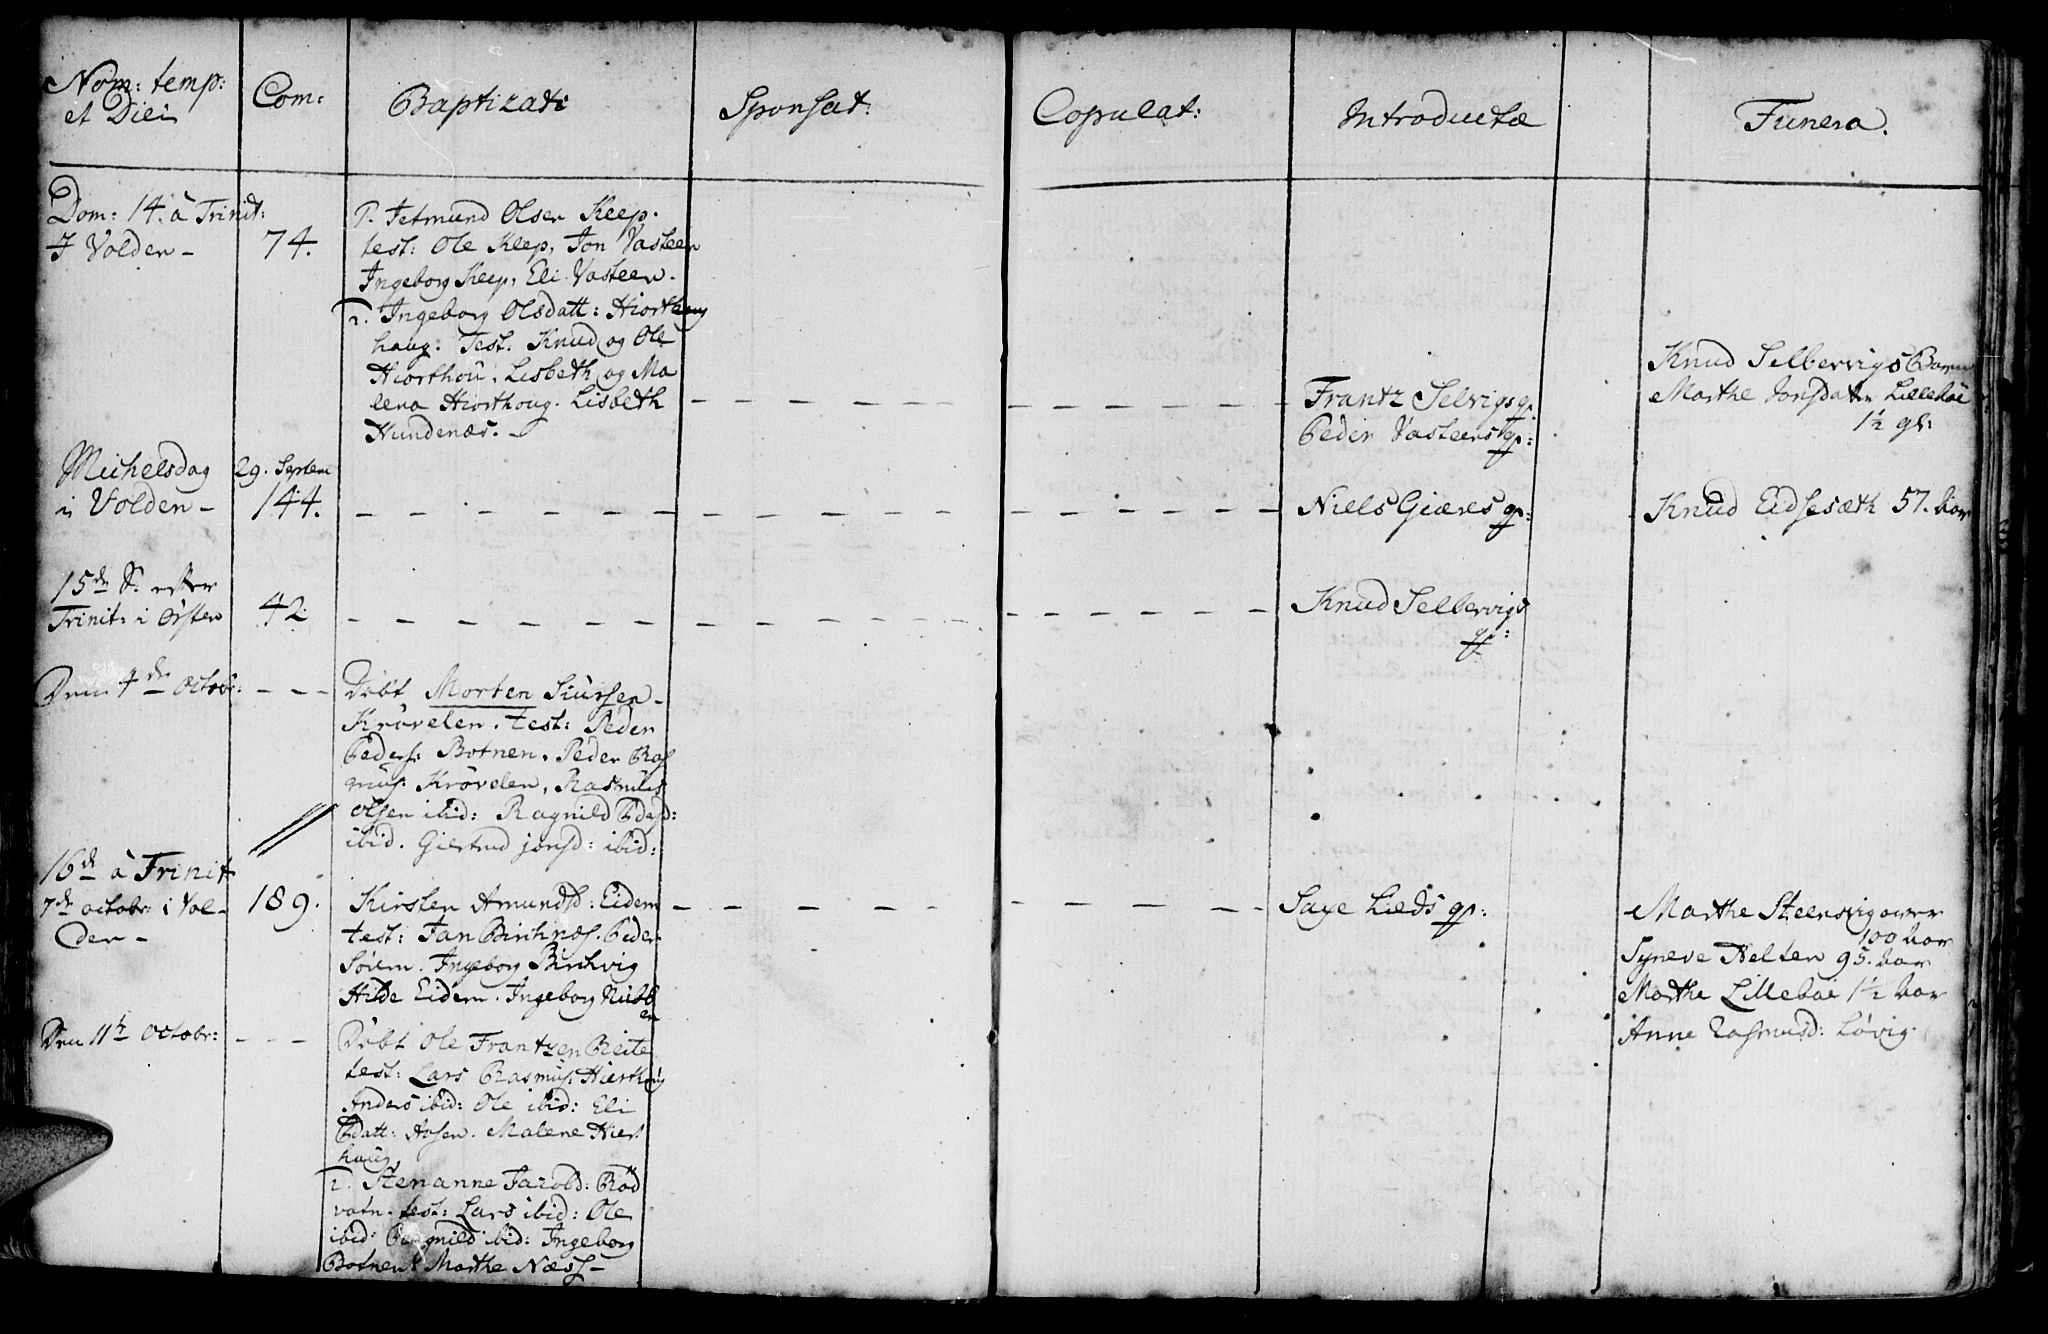 Nom: temp:
et Diei
Com:
Baptizati
Sponsat:
Copulat:
Introductæ
Funera.
Dom: 14. à Trinit:
I Volden -
74.
1. Jetmund Olsen Kleep.
test: Ole Kleep, Jon Vasteen
Ingeborg Kleep, Eli Vasteen.
2. Ingeborg Olsdatt: Hiorthoug
haug: Test. Knud og Ole
Hiorthou, Lisbeth og Ma
lena Hiorthoug. Lisbeth
Hundenæs. -
Frantz Selvigs qv:
Peder Vasteens qv:
Knud Selbervigs Barn
Marthe Jonsdatr Lillebøe
1½ gl:
Michelsdag
i Volden -
29. Septem
144.
Niels Giæres qv:
Knud Eidsesæth 57. Aar
15de S: efter
Trinit: i Ørsten
42
Knud Selbervigs
qv:
Den 4de Octobr:
Døbt Morten Siursen
Krøvelen. test: Peder
Peders: Botnen, Peder Ras
mus: Krøvelen, Rasmus
Olsen ibid: Ragnild Pedersd:
ibid. Giertrud jonsd: ibid:
16de à Trinit
7de octobr: i Vol-
den -
189.
Kirsten Amundsd: Eidem
test: Jan Birchnæs. Peder
Søiem. Ingeborg Birchvig
Hilde Eidem. Ingeborg Nubb
en
Saxe Lieds qv:
Marthe Steensvig over
100 Aar
Syneve Helten 95. Aar
Marthe Lillebøe 1½ Aar
Anne Rasmusd: Løvig
Den 11te Octobr:
Døbt Ole Frantzen Reite
test: Lars Rasmus: Hiorthoug
Anders ibid: Ole ibid: Eli
Pdatt: Aasen. Malene Hiort
haug,
2. Stenanne Jacobd: Rød
vatn. test: Lars ibid: Ole
ibid: Ragnild ibid: Ingeborg
Botnen Marthe Næss -